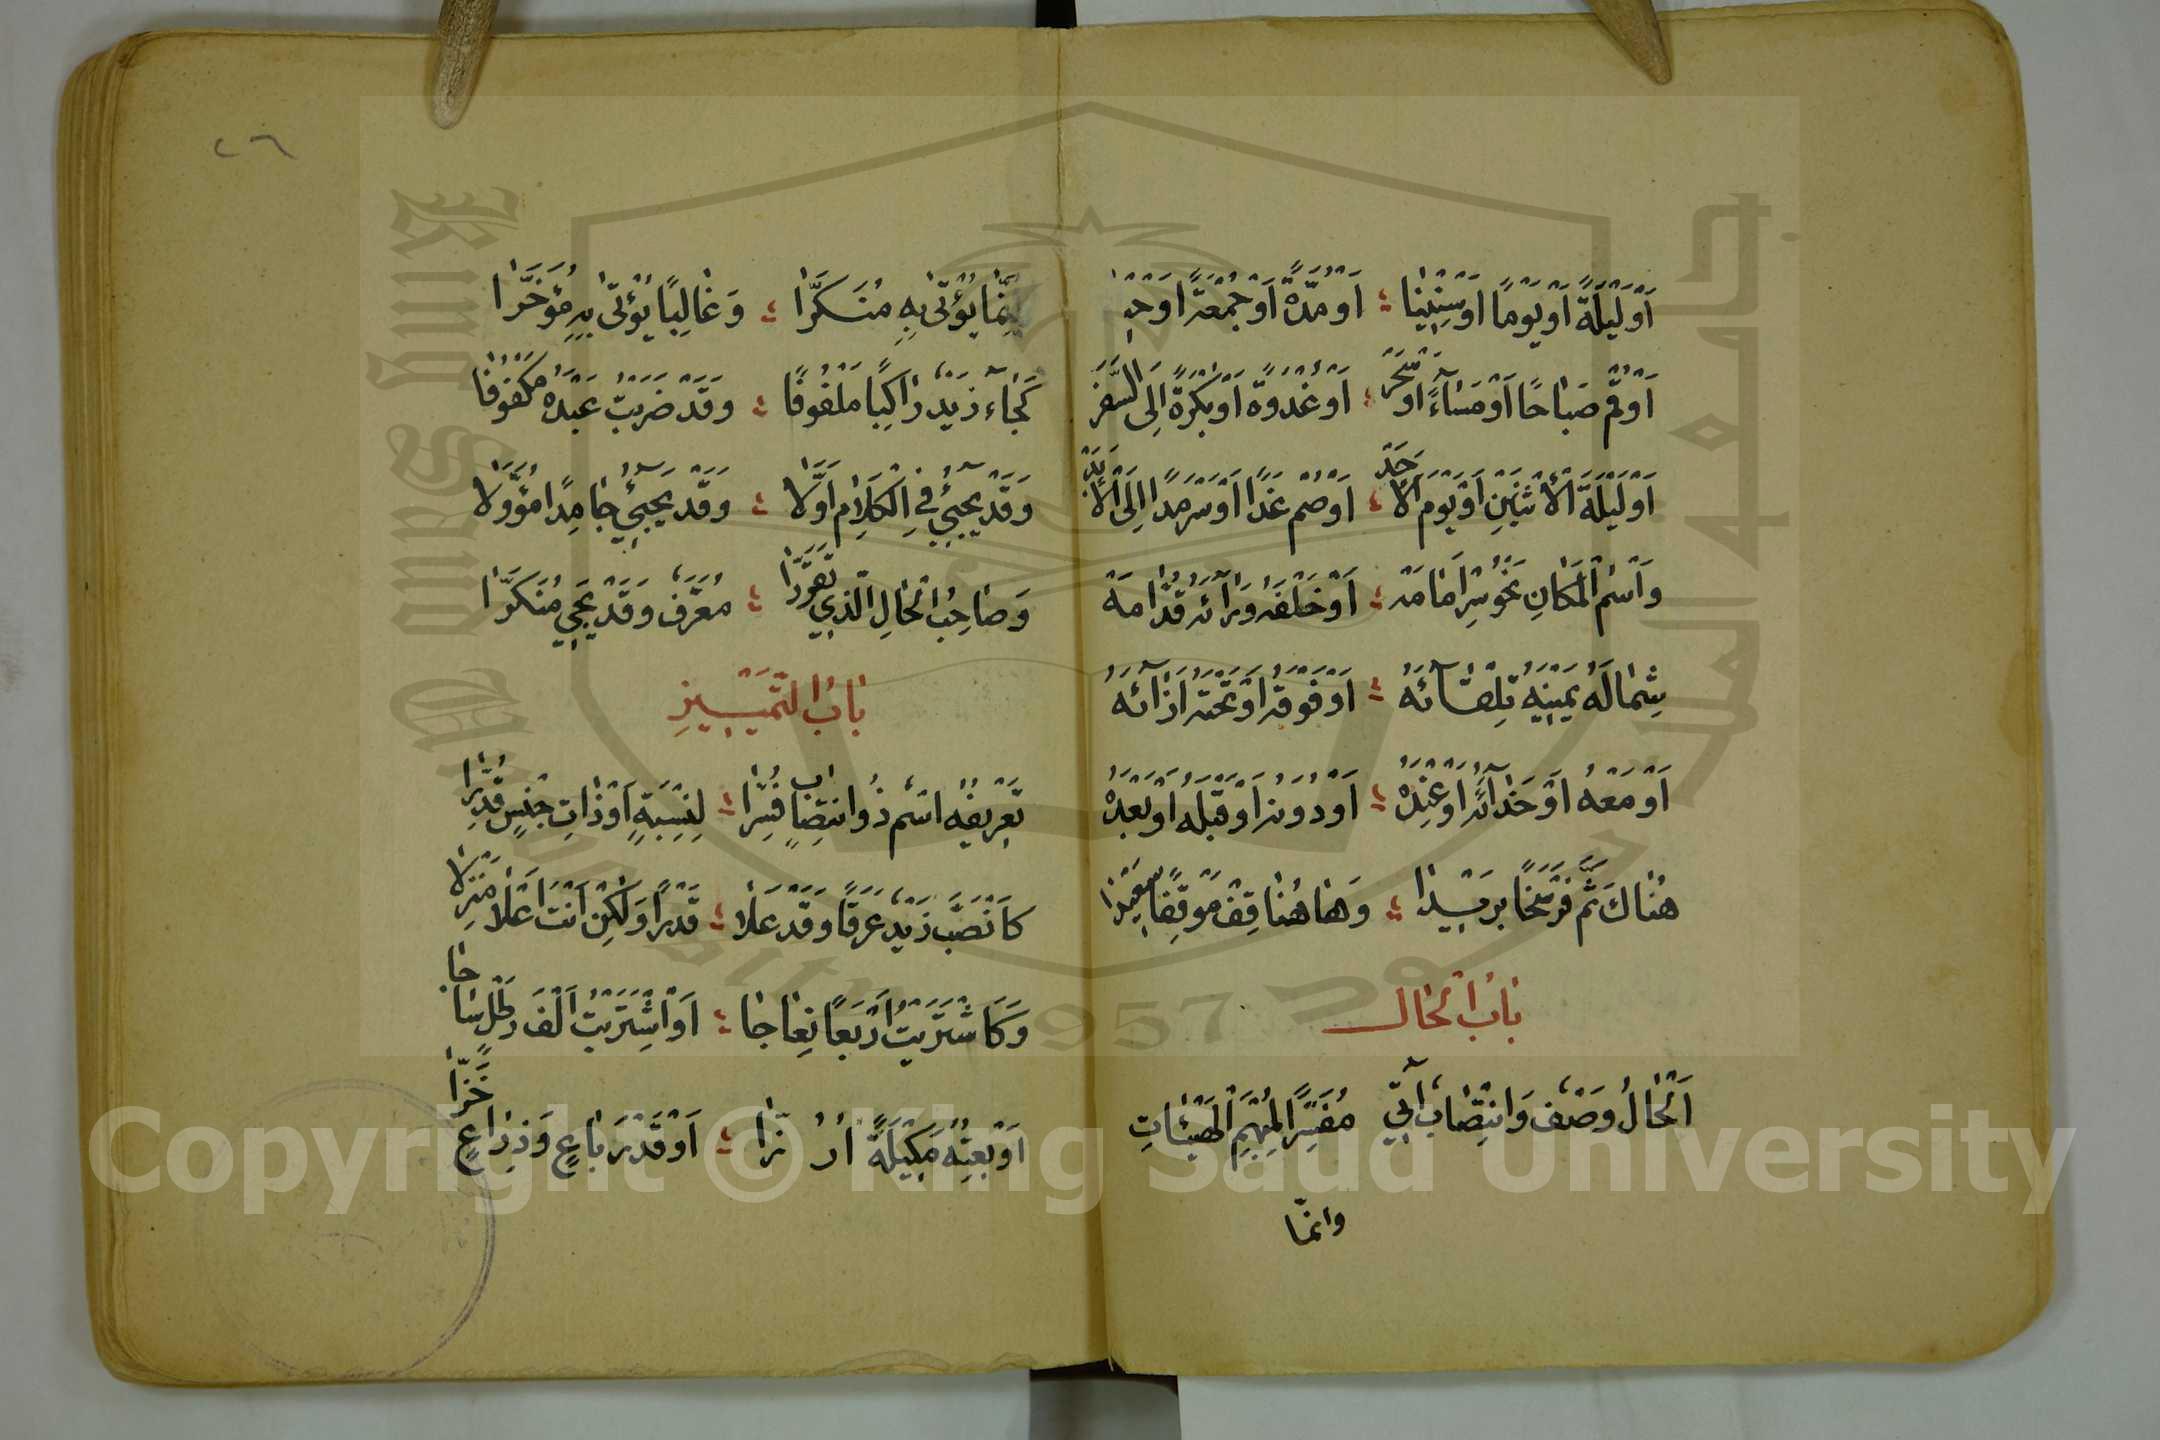 اَوْ لَيْلَةً اَوْ يَوْمًا اَوْ سِنِيْنَا اَوْ مُدَّةً اَوْ جُمْعَةً اَوْ
اَوْ قُمْ صَبَاحًا اَوْ مَسَآءً اَوْ سَحَرْ اَوْ غُدْوَةً اَوْ بُكْرَةً اِلَى السَّفَرْ
اَوْ لَيْلَةَ الْاِثْنَيْنِ اَوْ يَوْمَ الْاَحَدْ اَوْ صُمْ غَدًا اَوْ سَرْمَدًا اِلَى الْاَبَدْ
وَاسْمُ الْمَكَانِ نَحْوُ سِرْ اَمَامَهْ اَوْ خَلْفَهُ وَرَآئَهُ قُدَّامَهْ
شِمَالَهُ يَمِيْنِهُ تِلْقَآئَهُ اَوْ فَوْقَهُ اَوْ تَحْتَهُ اِزَآئَهُ
اَوْ مَعْهُ اَوْ حِذَآئَهُ اَوْ عِنْدَهْ اَوْ دُوْنَهُ اَوْ قَبْلَهُ اَوْ بَعْدَهْ
هُنَاكَ ثَمَّ فَرْسَخًا بَرِيْدَا وَهَاهُنَا قِفْ مَوْقِفًا سَعِيْدَا
بَابُ الْحَالِ
اَلْحَالُ وَصْفٌ وَانْتِصَابٌ اٰتِيْ مُفَسِّرًا لِمُبْهَمِ الْهَيْئَاتِ
وانمّا
٢٦
اِنَّمَا يُؤْتَى بِهِ مُنَكَّرَا وَغَالِبًا يُؤْتَى بِهِ مُؤَخَّرَا
كَجَآءَ زَيْدٌ رَاكِبًا مَلْفُوْفًا وَقَدْ ضَرَبْتُ عَبْدَهُ مَكْفُوْفَا
وَقَدْ يَجِيْئُ فِي الْكَلَامِ اَوَّلَا وَقَدْ يَجِيْئُ جَامِدًا مُؤَوَّلَا
وَصَاحِبُ الْحَالِ الَّذِيْ تَقَرَّرَا مُعَرَّفٌ وَقَدْ يَجِيْ مُنَكَّرَا
بَابُ التَّمْيِيْزِ
تَعْرِيْفُهُ اسْمٌ ذُو انْتِصَابٍ فَسَّرَا لِنِسْبَةٍ اَوْ ذَاتِ جِنْسٍ قُدِّرَا
كَانْصَبَّ زَيْدٌ عَرَقًا وَقَدْ عَلَا قَدْرًا وَلٰكِنْ اَنْتَ اَعْلَا مَنْزِلَا
وَكَاشْتَرَيْتُ اَرْبَعًا نِعَاجَا اَوِ اشْتَرَيْتُ اَلْفَ رَطْلٍ سَاجَا
اَوْ بِعْتُهُ مَكِيْلَةً اَوْ قَدْرَ بَاعٍ وَذِرَاعٍ خَزَّا